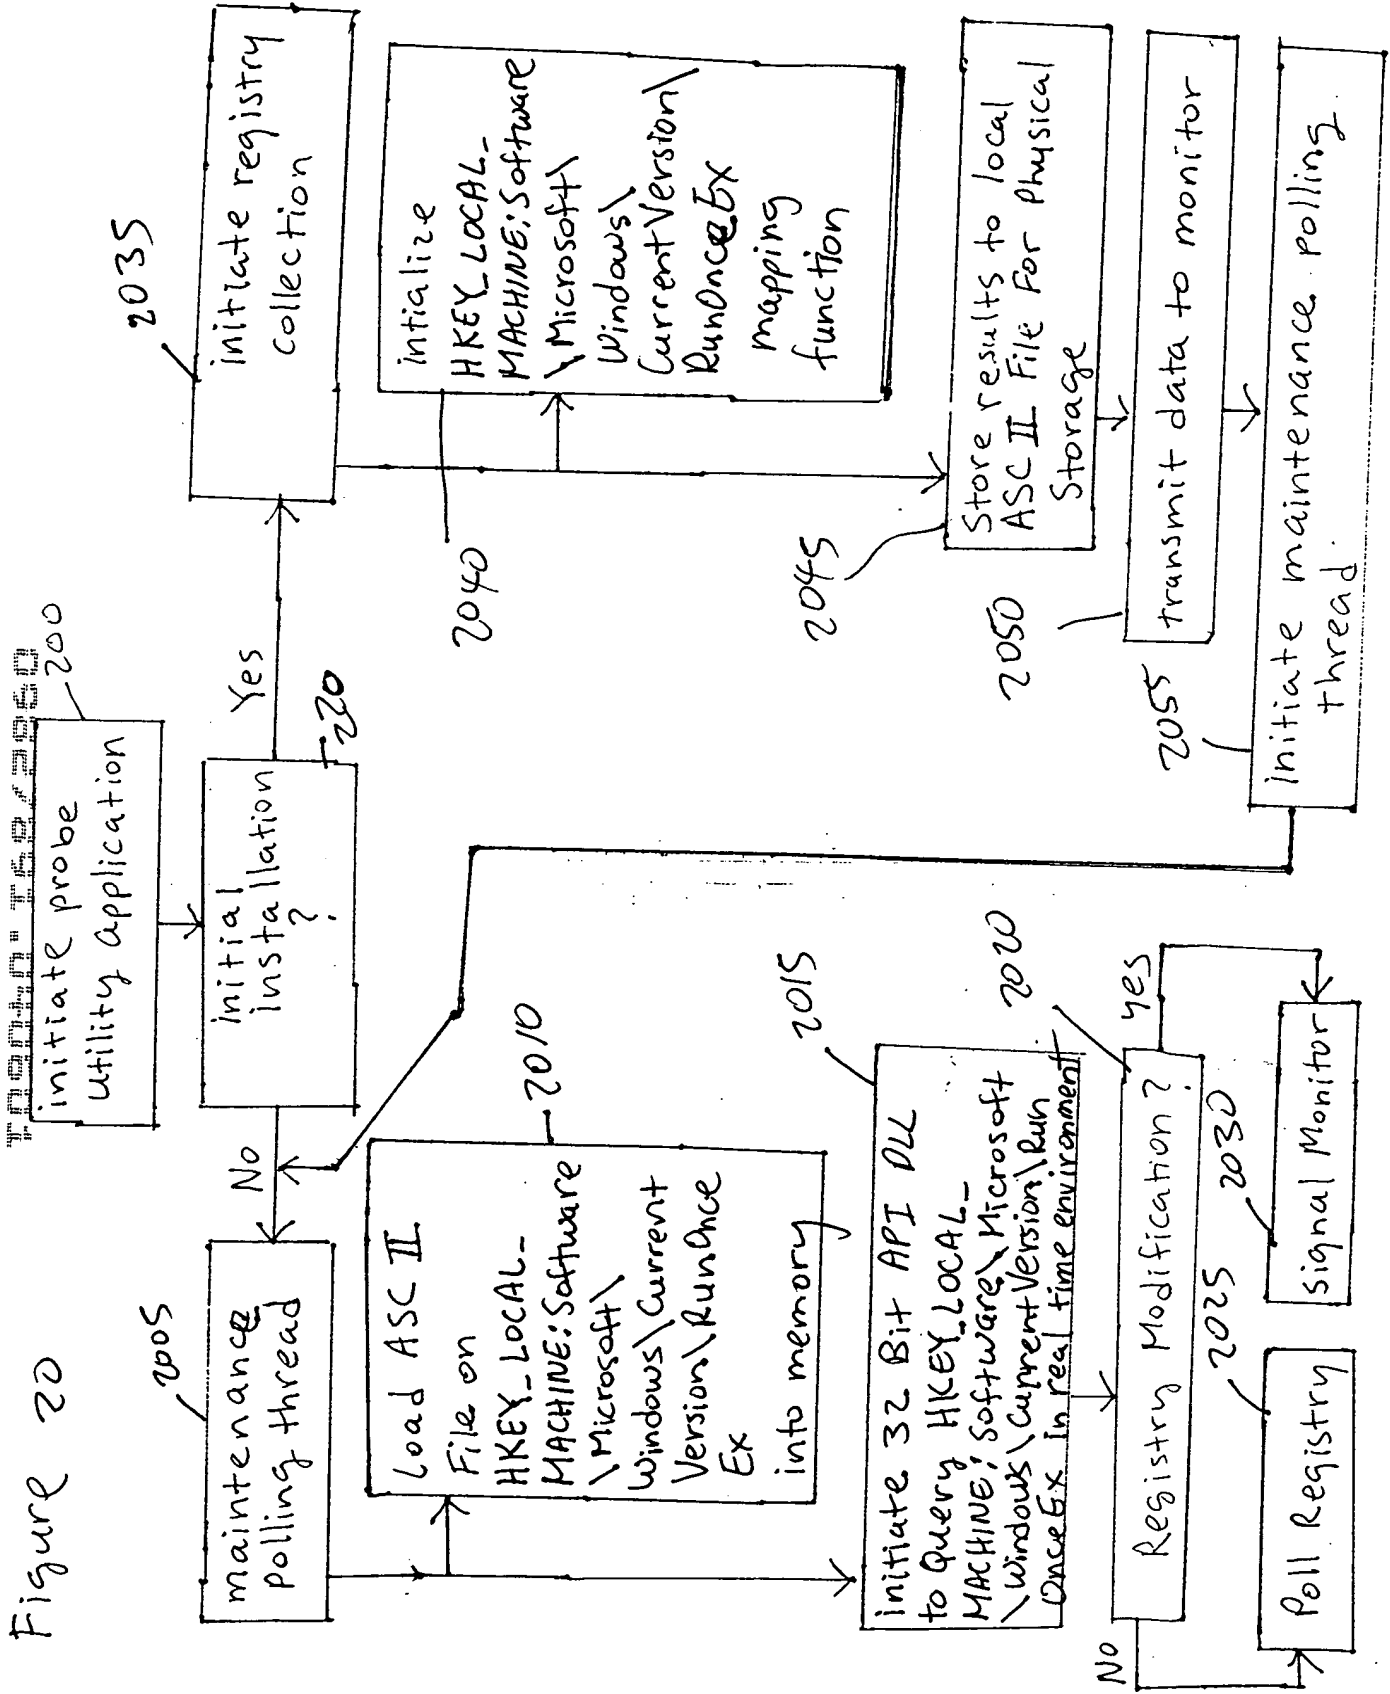 Figure 20
initiate probe
Utility application
200
initial
installation
?
220
No
Yes
maintenance
polling thread
2005
Load ASC II
File on
HKEY_LOCAL_
MACHINE:Software
\Microsoft\
Windows\Current
Version\RunOnce
Ex
into memory
2010
initiate 32 Bit API DLL
to Query HKEY_LOCAL_
MACHINE:Software\Microsoft
\Windows\CurrentVersion\Run
OnceEx in real time environment
2015
Registry Modification?
2020
No
yes
Poll Registry
2025
Signal Monitor
2030
initiate registry
collection
2035
intialize
HKEY_LOCAL_
MACHINE:Software
\Microsoft\
Windows\
CurrentVersion\
RunOnceEx
mapping
function
2040
Store results to local
ASC II File For physical
Storage
2045
transmit data to monitor
2050
initiate maintenance polling
thread.
2055